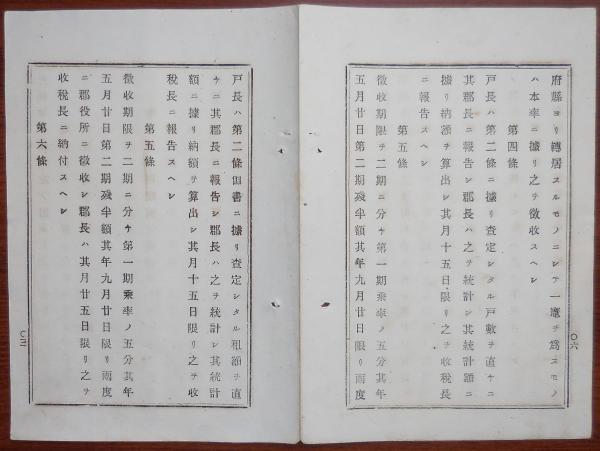 府縣ヨリ轉居スルモノニシテ一竈ヲ爲スモノ
ハ本率ニ據リ之ヲ徵收スヘシ
第四條
戸長ハ第二條ニ據リ査定シタル戸數ヲ直ヤニ
其郡長ニ報告シ郡長ハ之ヲ統計シ其統計額ニ
據リ納額ヲ算出シ其月十五日限リ之ヲ收税長
ニ報告スヘシ
第五條
徵收期限ヲ二期ニ分ヶ第一期乘率ノ五分其年
五月廿日第二期殘半額其年九月廿日限リ兩度
戸長ハ第二條但書ニ據リ査定シタル租額ヲ直
ヤニ其郡長ニ報告シ郡長ハ之ヲ統計シ其統計
額ニ據リ納額ヲ算出シ其月十五日限リ之ヲ收
税長ニ報告スヘシ
第五條
徵收期限ヲ二期ニ分ヶ第一期乘率ノ五分其年
五月廿日第二期殘半額其年九月廿日限リ兩度
ニ郡役所ニ徵收シ郡長ハ其月廿五日限リ之ヲ
收税長ニ納付スヘシ
第六條